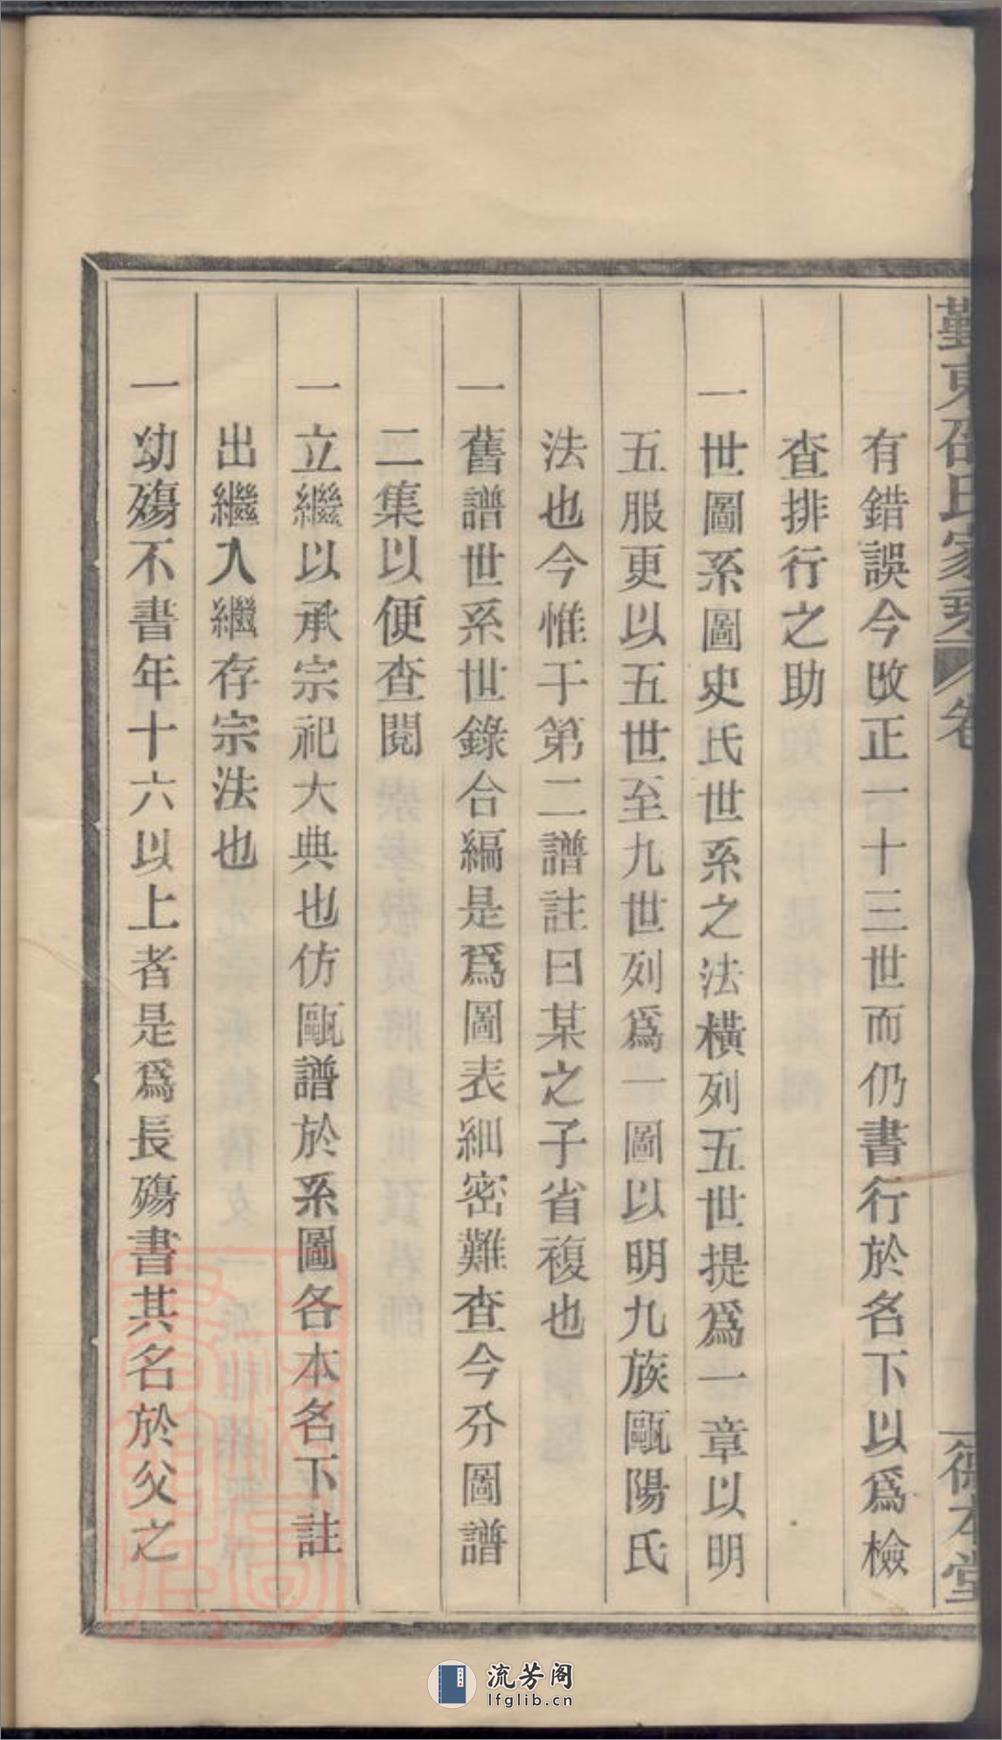 東邵氏家乘 卷
德本堂
有錯誤今改正一十三世而仍書行於名下以爲檢
查排行之助
一世圖系圖史氏世系之法橫列五世提爲一章以明
五服更以五世至九世列爲一圖以明九族甌陽氏
法也今惟于第二譜註曰某之子省複也
一舊譜世系世錄合編是爲圖表細密難查今分圖譜
二集以便查閱
一立繼以承宗祀大典也仿甌譜於系圖各本名下註
出繼入繼存宗法也
一幼殤不書年十六以上者是爲長殤書其名於父之
流芳阁
lfglib.cn